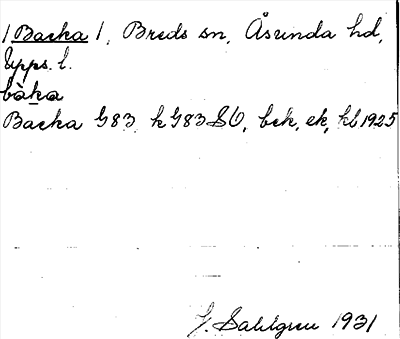 /Backa/, Breds sn, Åsunda hd,
Upps. l.
bàka
Backa G83 k G83 SO, bek, ek, kb 1925
J. Sahlgren 1931